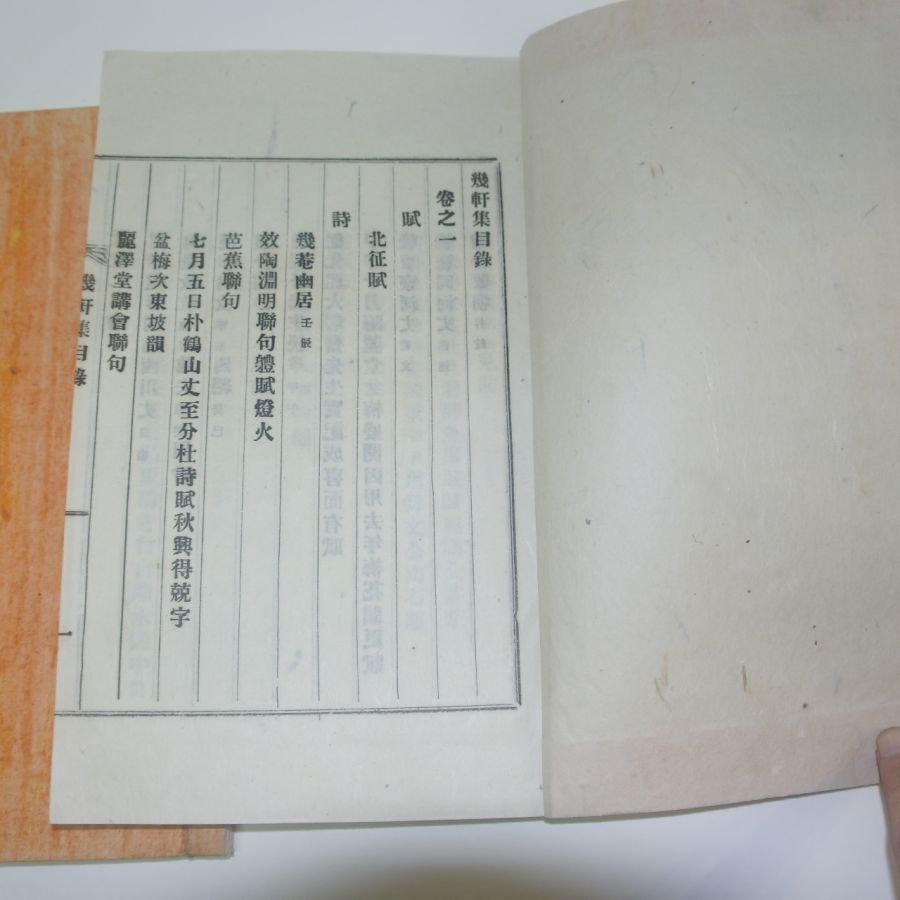 幾軒集目錄
卷之一
賦
北征賦
詩
幾菴幽居 壬辰
效陶淵明聯句體賦燈火
芭蕉聯句
七月五日朴鶴山丈至分杜詩賦秋興得兢字
盆梅次東坡韻
麗澤堂講會聯句
幾軒集目錄
一